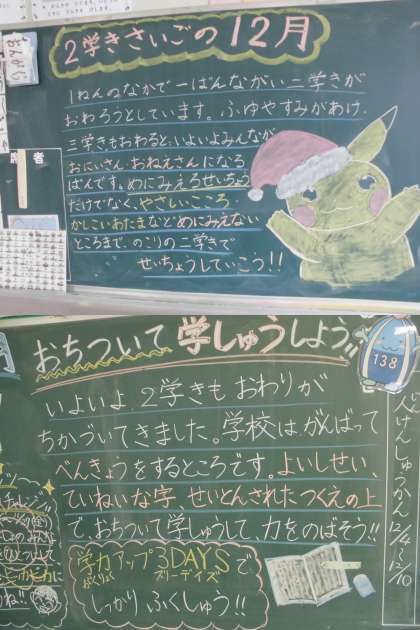 おんがく
２学きさいごの１２月
１ねんのなかで一ばんながい二学きが
おわろうとしています。ふゆやすみがあけ、
三学きもおわると、いよいよみんなが
おにいさん、おねえさんになる
ばんです。めにみえるせいちょう
だけでなく、やさしいこころ・
かしこいあたまなどめにみえない
ところまで、のこりの二学きで
せいちょうしていこう!!
者
おちついて学しゅうしよう!!
138
いよいよ、２学きもおわりが
ちかづいてきました。学校は、がんばって
べんきょうをするところです。よいしせい、
ていねいな字、せいとんされたつくえの上
で、おちついて学しゅうして、力をのばそう!!
学力アップ3DAYSで
がくりょく
スリーデイズ
しっかりふくしゅう!!
人けんしゅうかん 12/4〜12/10